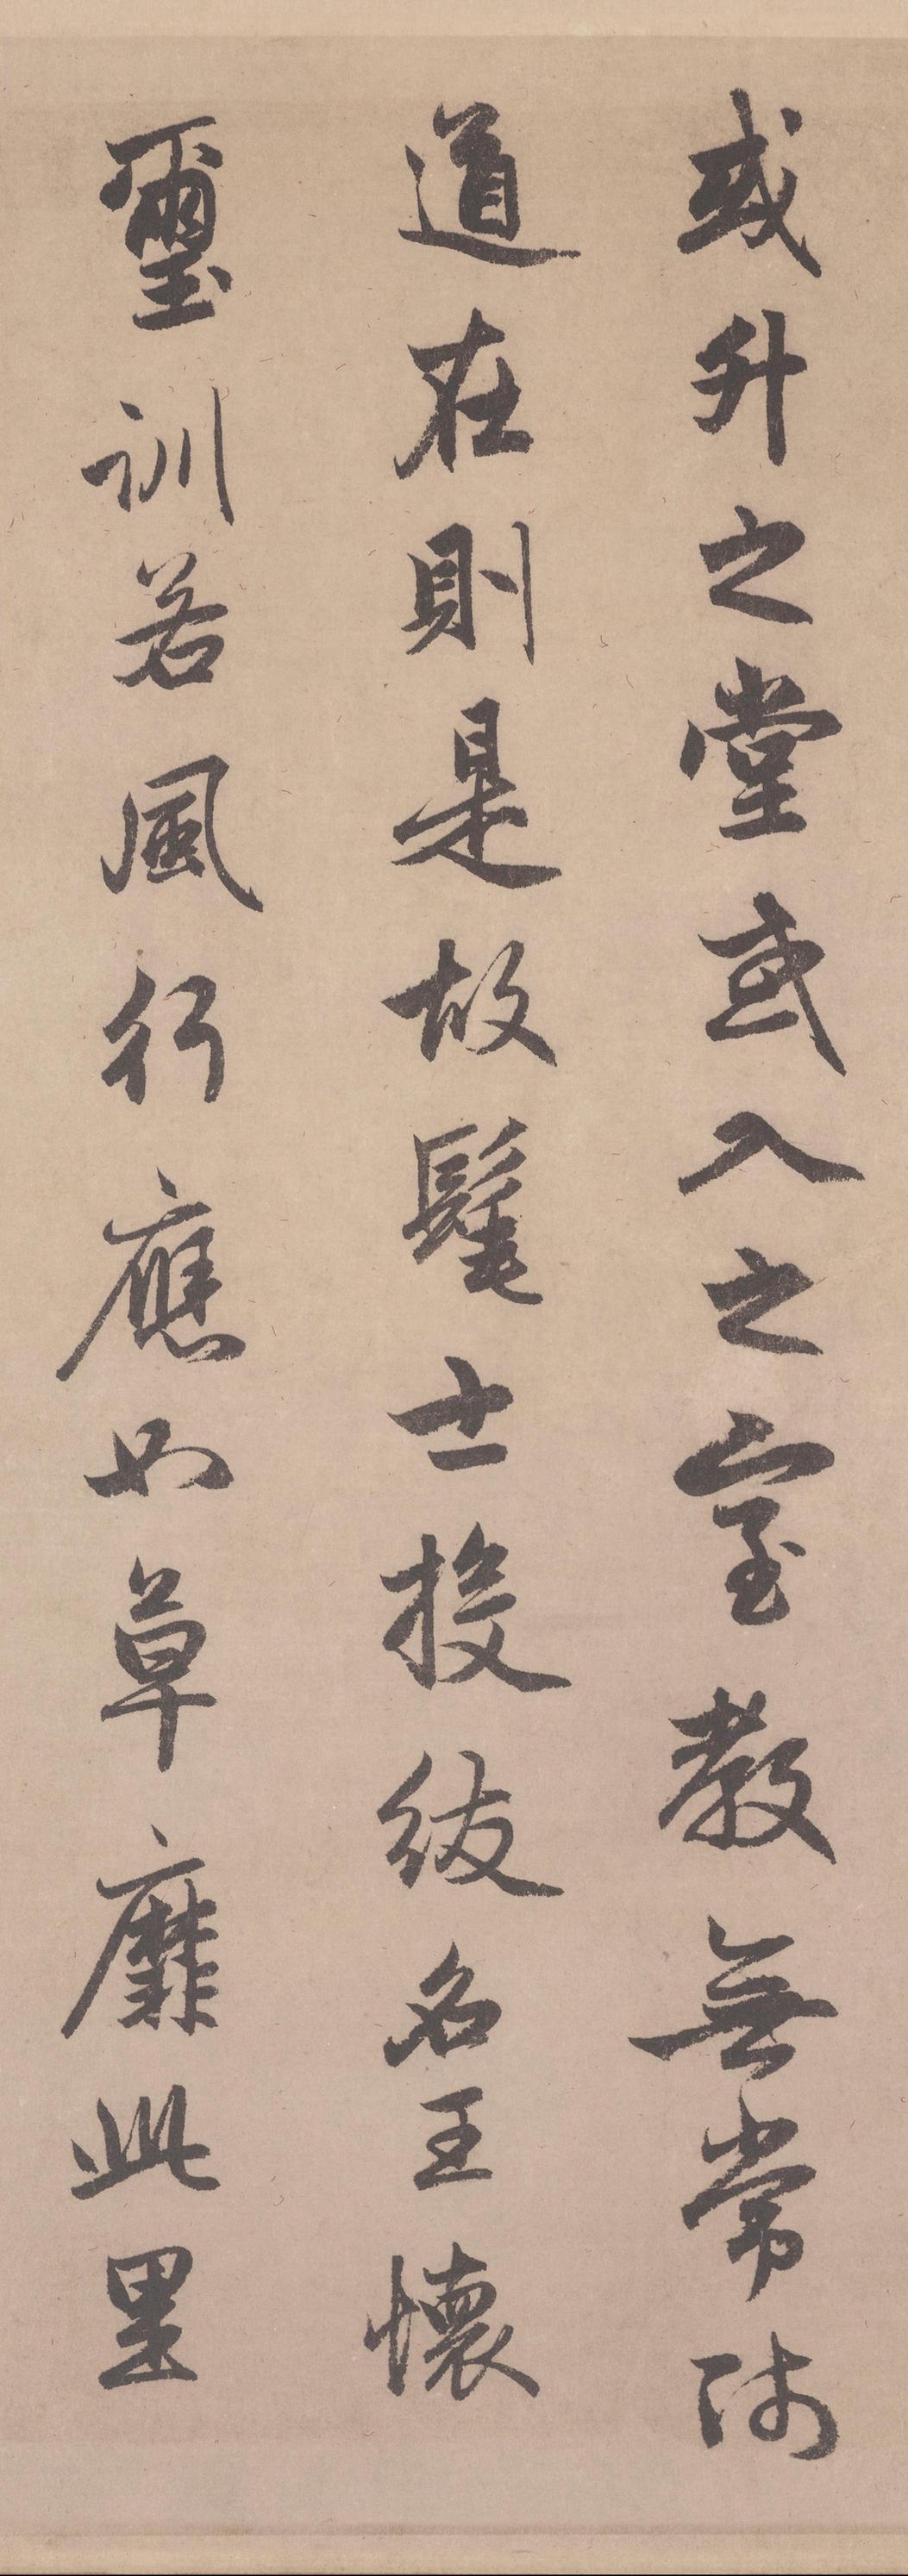 或升之堂或入之室教無常師
道在則是故髦士投紱名王懷
璽訓若風行應如草靡此里